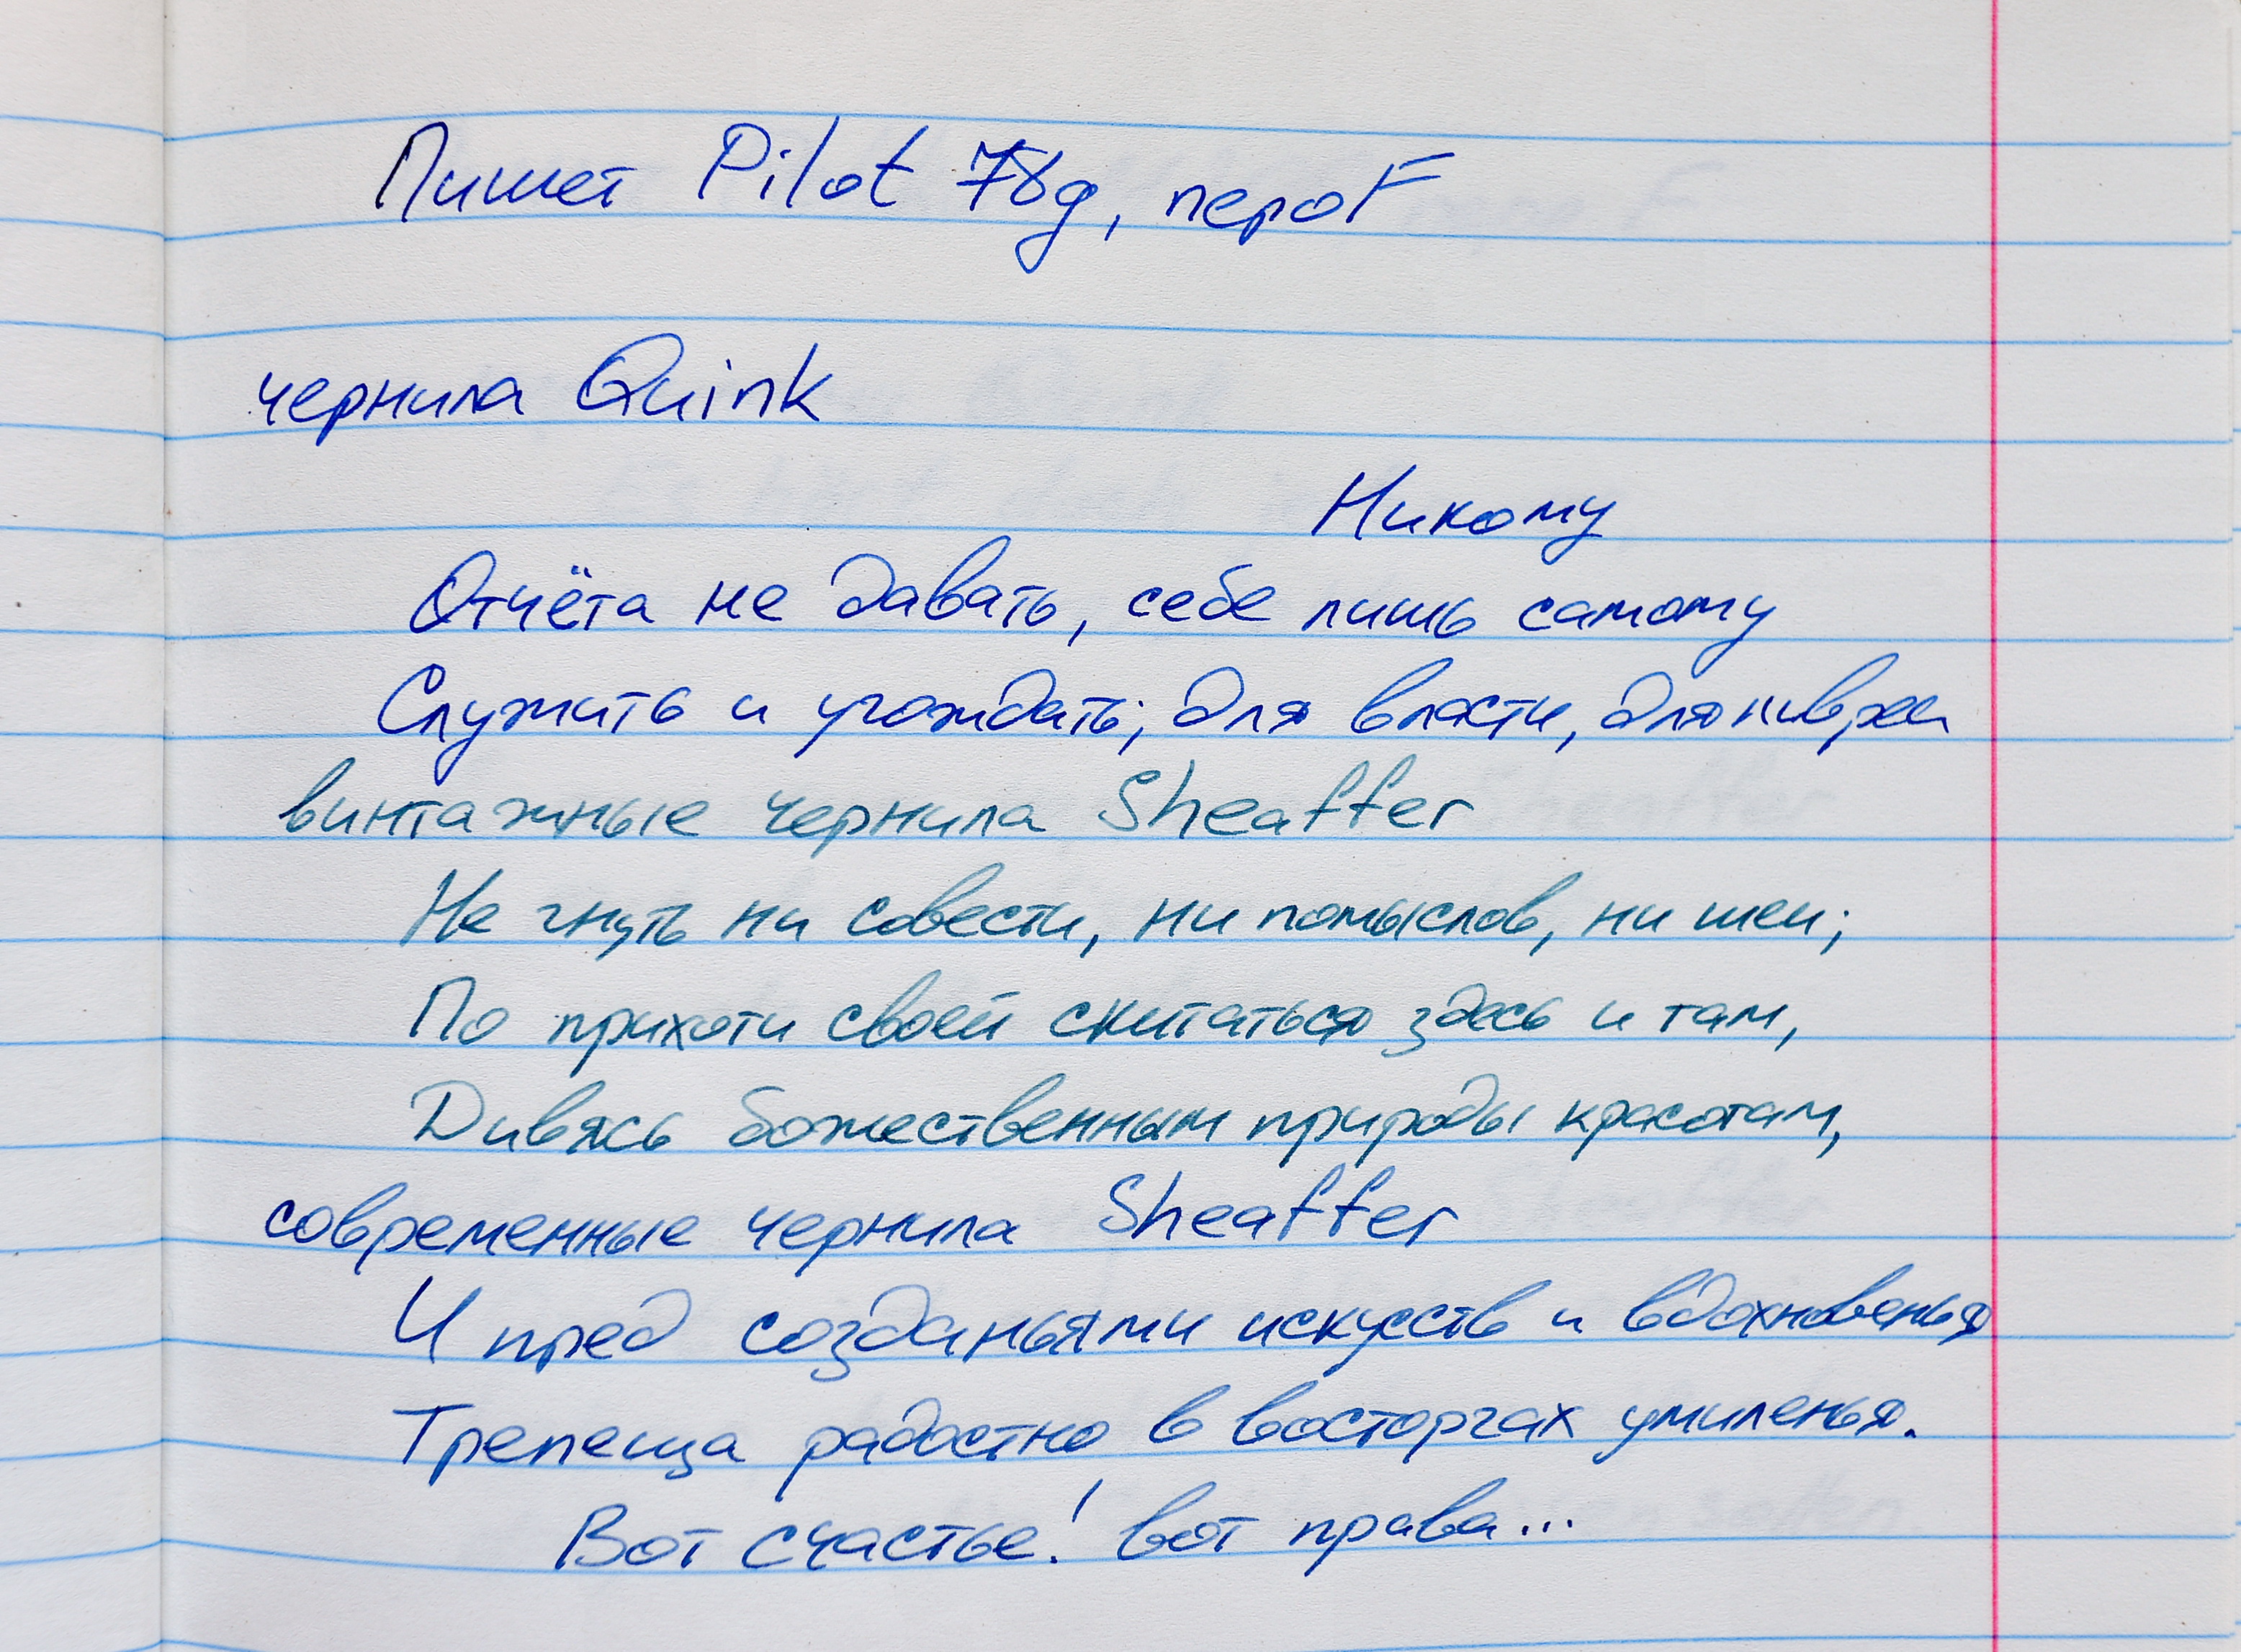 Пишет Pilot 78g, перо F
чернила Quink
Никому
Отчёта не давать, себе лишь самому
Служить и угождать; для власти, для ливреи
винтажные чернила Sheaffer
Не гнуть ни совести, ни помыслов, ни шеи;
По прихоти своей скитаться здесь и там,
Дивясь божественным природы красотам,
современные чернила Sheaffer
И пред созданьями искусств и вдохновенья
Трепеща радостно в восторгах умиленья.
Вот счастье! вот права...